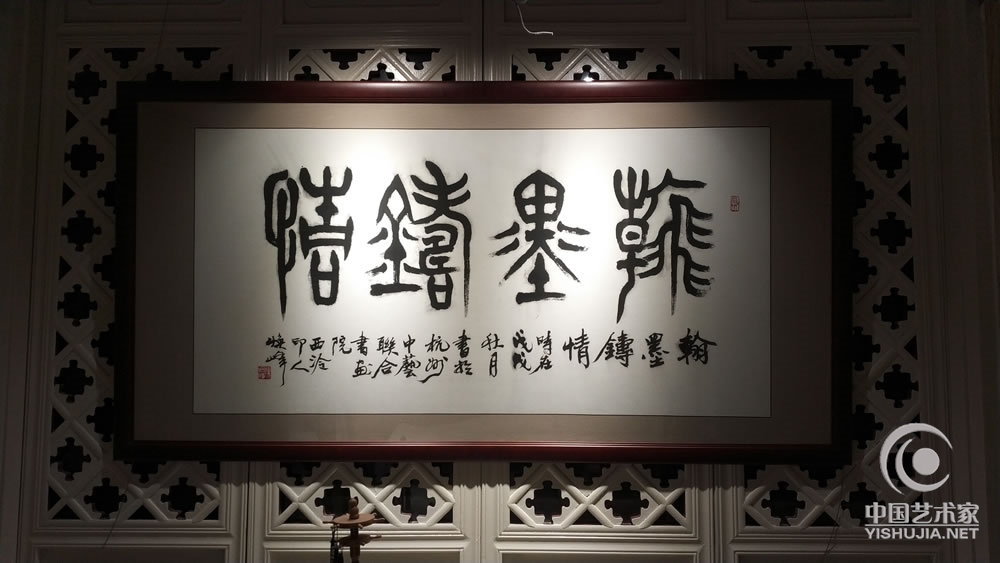 翰墨鑄情
翰墨鑄情
時在
戊戌
秋月
書於
杭州
中藝
聯合
書画
院
西泠
印人
峰
中国艺术家
YISHUJIA.NET